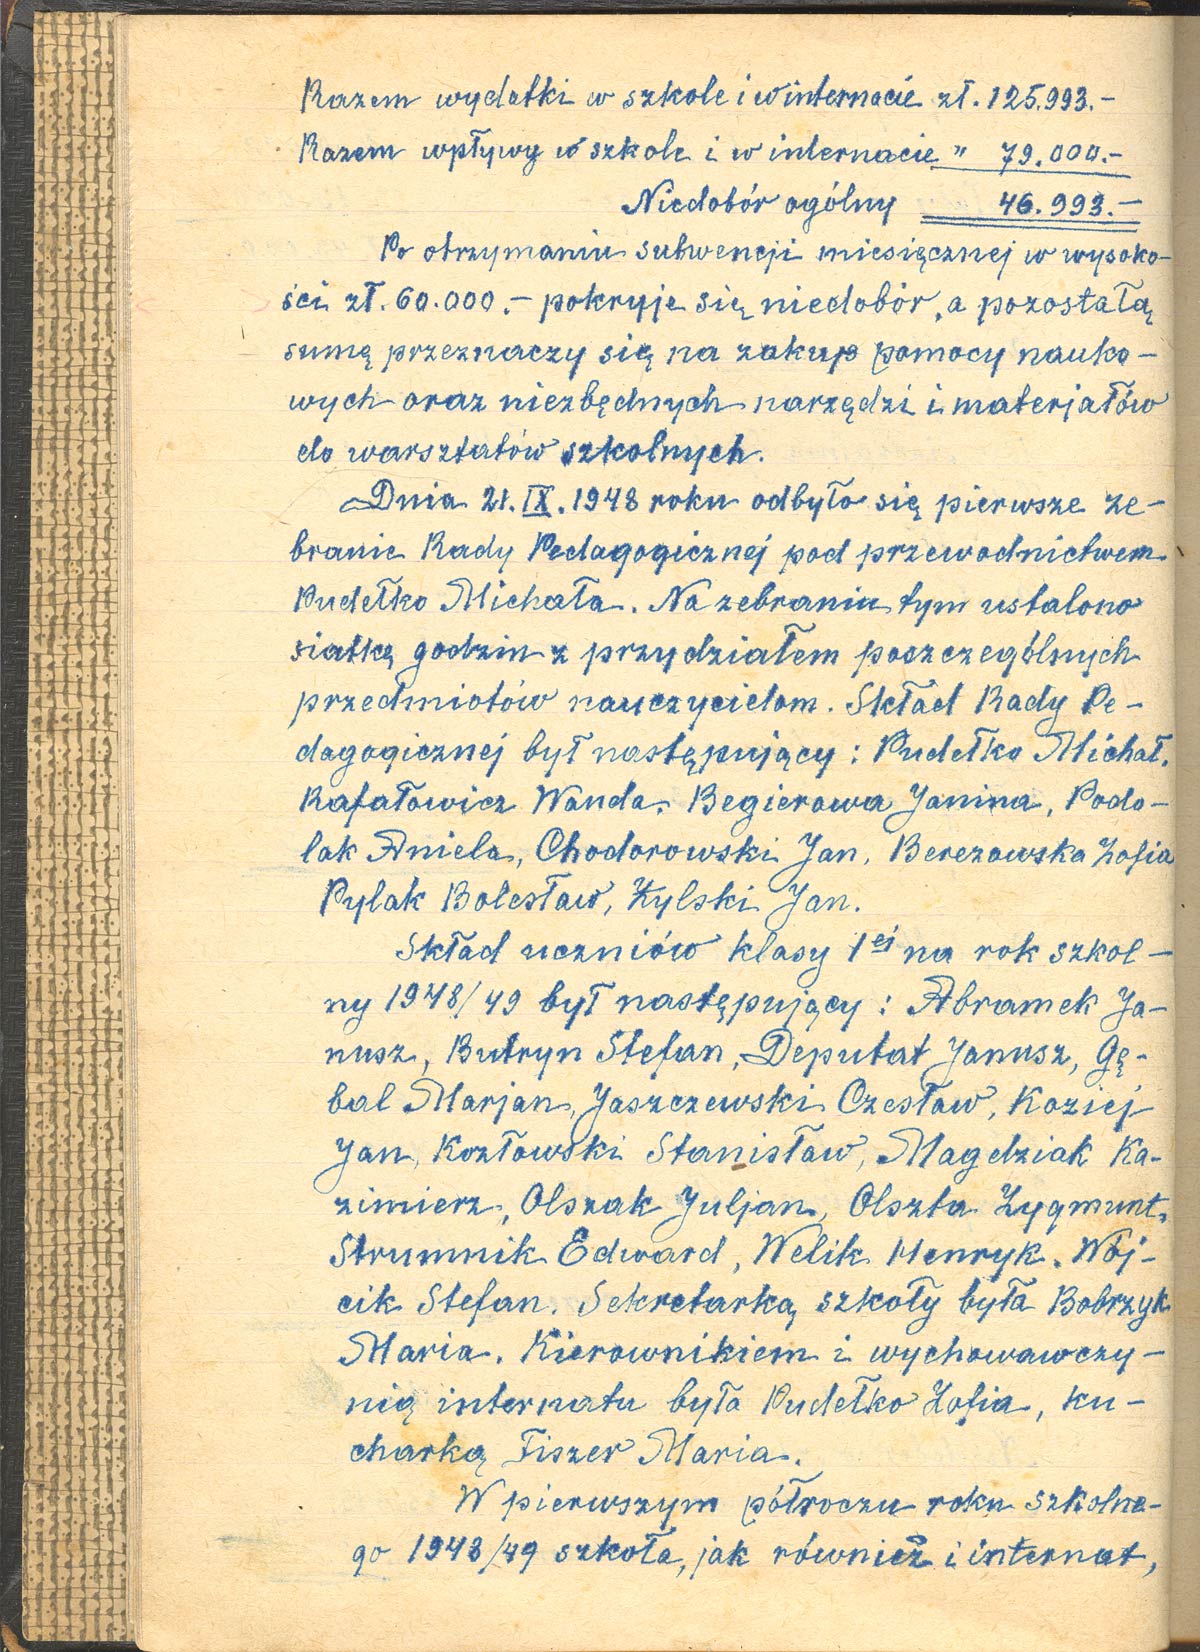 Razem wydatki w szkole i w internacie zł. 125.993.-
Razem wpływy w szkole i w internacie " 79.000.-
Niedobór ogólny 46.993.-
Po otrzymaniu subwencji miesięcznej w wysoko-
ści zł. 60.000.- pokryje się niedobór, a pozostałą
sumę przeznaczy się na zakup pomocy nauko-
wych oraz niezbędnych narzędzi i materjałów
do warsztatów szkolnych.
Dnia 21.IX.1948 roku odbyło się pierwsze ze-
branie Rady Pedagogicznej pod przewodnictwem
Pudełko Michała. Na zebraniu tym ustalono
siatkę godzin z przydziałem poszczególnych
przedmiotów nauczycielom. Skład Rady Pe-
dagogicznej był następujący: Pudełko Michał,
Rafałowicz Wanda, Begierowa Janina, Podo-
lak Aniela, Chodorowski Jan, Berezowska Zofia
Pylak Bolesław, Żylski Jan.
Skład uczniów klasy 1ej na rok szkol-
ny 1948/49 był następujący: Abramek Ja-
nusz, Butryn Stefan, Deputat Janusz, Gę-
bal Marjan, Jaszczewski Czesław, Koziej
Jan, Kozłowski Stanisław, Magdziak Ka-
zimierz, Olszak Juljan, Olszta Zygmunt,
Strumnik Edward, Welik Henryk, Wój-
cik Stefan. Sekretarką szkoły była Bobrzyk
Maria. Kierownikiem i wychowawczy-
nią internatu była Pudełko Zofia, ku-
charką Fiszer Maria.
W pierwszym półroczu roku szkolne-
go 1948/49 szkoła, jak również i internat,